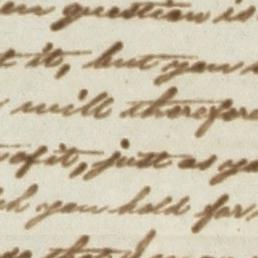 question is
it, but you
will therefore
just as
you hold for